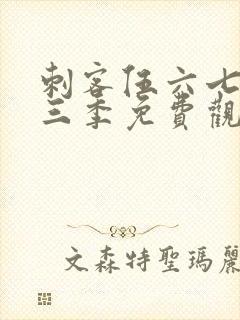 刺客伍六七
三季免費觀
文森特聖瑪麗